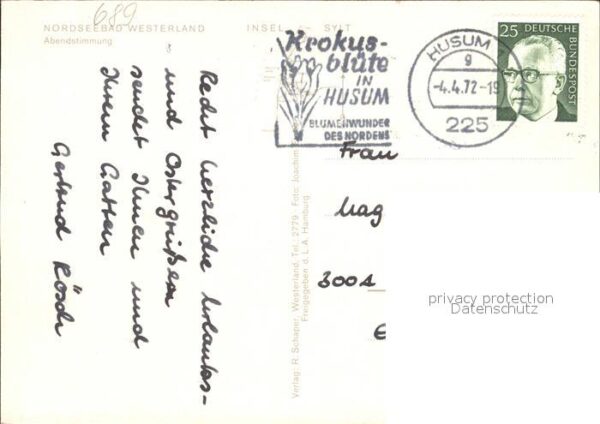 689
NORDSEEBAD WESTERLAND INSEL SYLT
Abendstimmung
Krokus-
blüte
IN
HUSUM
BLUMENWUNDER
DES NORDENS
HUSUM
g
-4.4.72-19
225
25 DEUTSCHE
BUNDESPOST
Recht herzliche Urlaubs-
und Ostergrüßen
sendet Ihnen und
Ihrem Gatten
Gertrud Rösch
Verlag: R. Schaper, Westerland, Tel. 2779 · Foto: Joachim
Freigegeben d. L. A. Hamburg
Frau
Mag
3001
E
privacy protection
Datenschutz